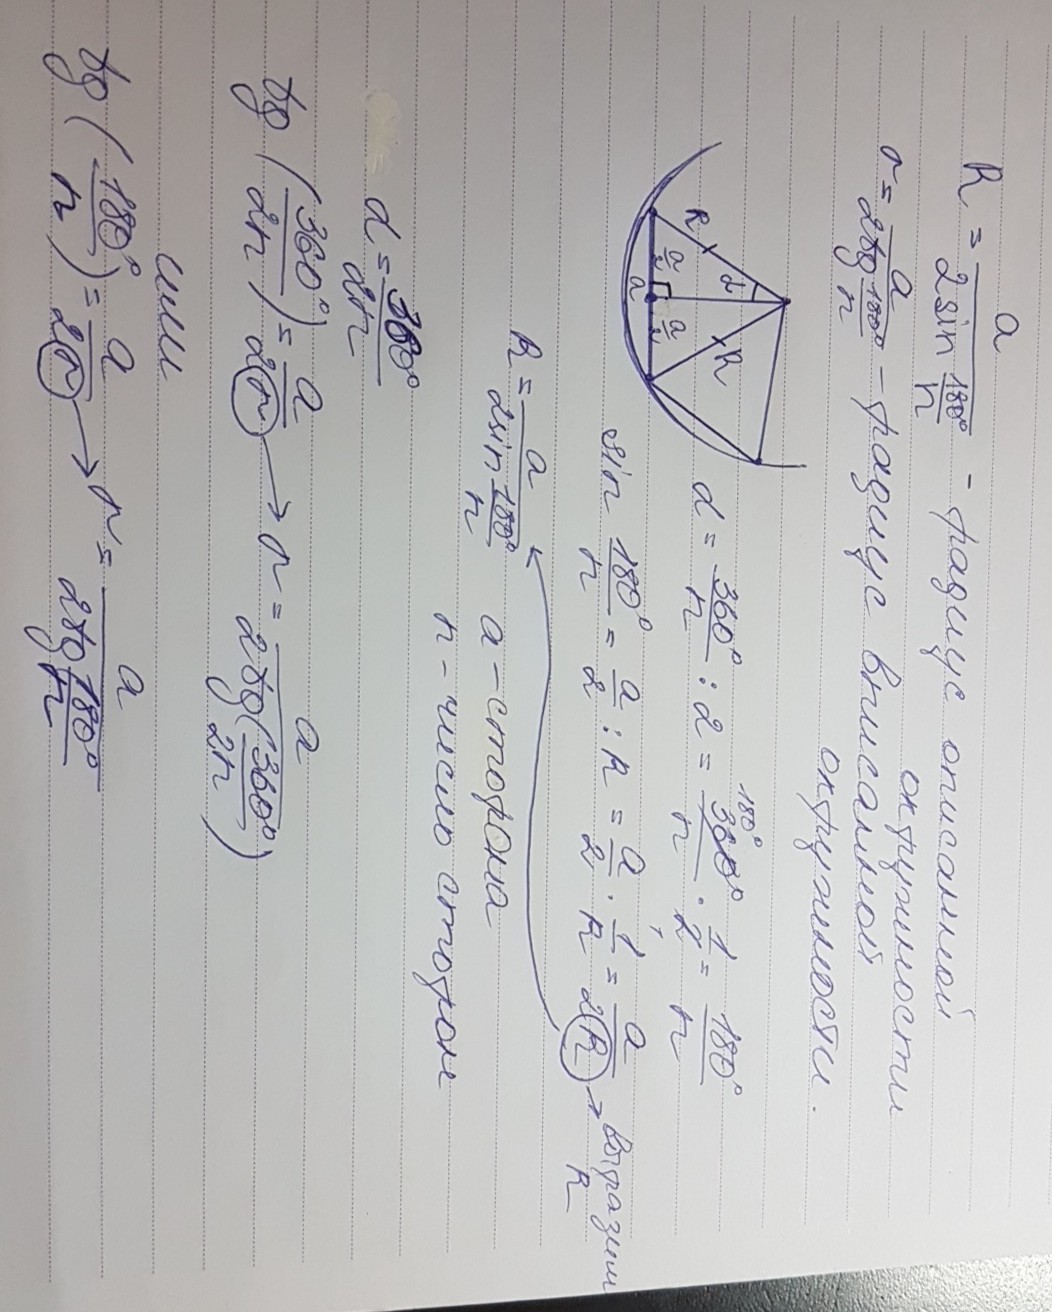 R = a / (2 sin 180°/n) - радиус описанной
окружности
r = a / (2 tg 180°/n) - радиус вписанной
окружности.
R α R
a/2 a/2
a
α = 360°/n : 2 = 360°/n · 1/2 = 180°/n
180°
sin 180°/n = a/2 : R = a/2 · 1/R = a/2R → выразим
R
R = a / (2 sin 180°/n)
a - сторона
n - число сторон
α = 360°/2n
tg (360°/2n) = a/2r → r = a / (2 tg (360°/2n))
или
tg (180°/n) = a/2r → r = a / (2 tg 180°/n)